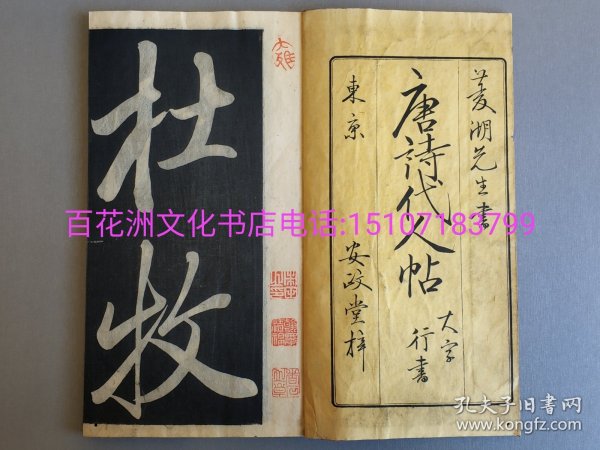 菱湖先生書
唐詩代人帖
大字
行書
東京
安政堂梓
杜牧
百花洲文化书店电话:15107183799
孔夫子旧书网